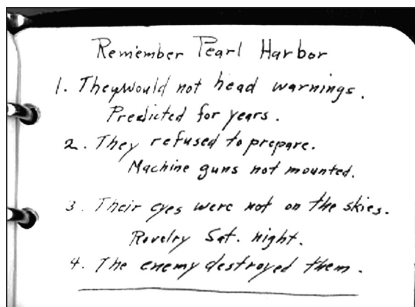 Remember Pearl Harbor
1. They would not head warnings.
Predicted for years.
2. They refused to prepare.
Machine guns not mounted.
3. Their eyes were not on the skies.
Revelry Sat. night.
4. The enemy destroyed them.